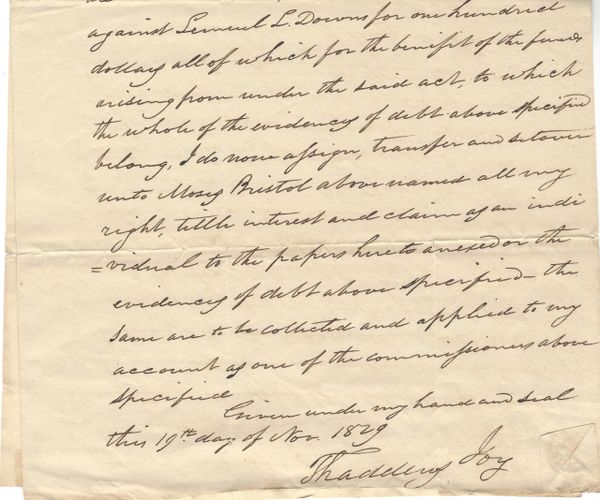 against Lemuel L. Downs for one hundred
dollars all of which for the benifit of the funds
arising from under the said act, to which
the whole of the evidences of debt above specified
belong, I do now assign, transfer and setover
unto Moses Bristol above named all my
right, tittle interest and claim as an indi
=vidual to the papers hereto anexed or the
evidences of debt above specified – the
same are to be collected and applied to my
account as one of the commissioners above
specified
Given under my hand and seal
this 19th day of Nov. 1829
Thaddeus Joy